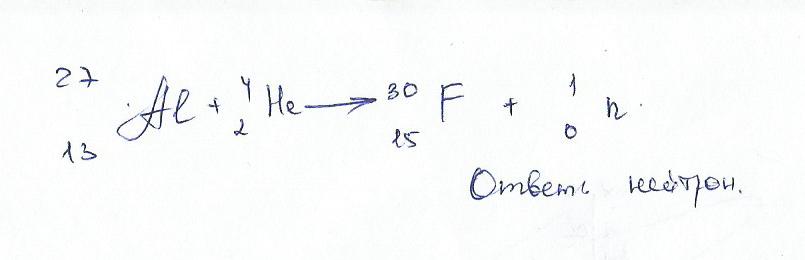 ²⁷₁₃Al + ⁴₂He → ³⁰₁₅F + ¹₀n.
Ответ нейтрон.